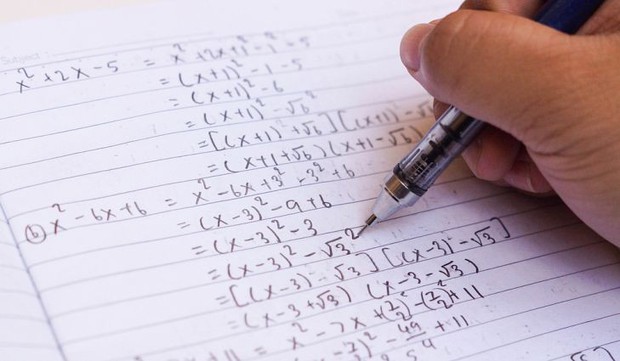 Subject
x² + 2x - 5 = x² + 2x + 1² - 1² - 5
= (x+1)² - 1 - 5
= (x+1)² - 6
= (x+1)² - √6²
= [(x+1) + √6] [(x+1) - √6]
= (x+1+√6) (x+1-√6)
(b) x² - 6x + 6 = x² - 6x + 3² - 3² + 6
= (x-3)² - 9 + 6
= (x-3)² - 3
= (x-3)² - √3²
= [(x-3) - √3] [(x-3) - √3]
= (x-3+√3) (x-3-√3)
= x² - 7x + (7/2)² - (7/2)² + 11
49/4 + 11